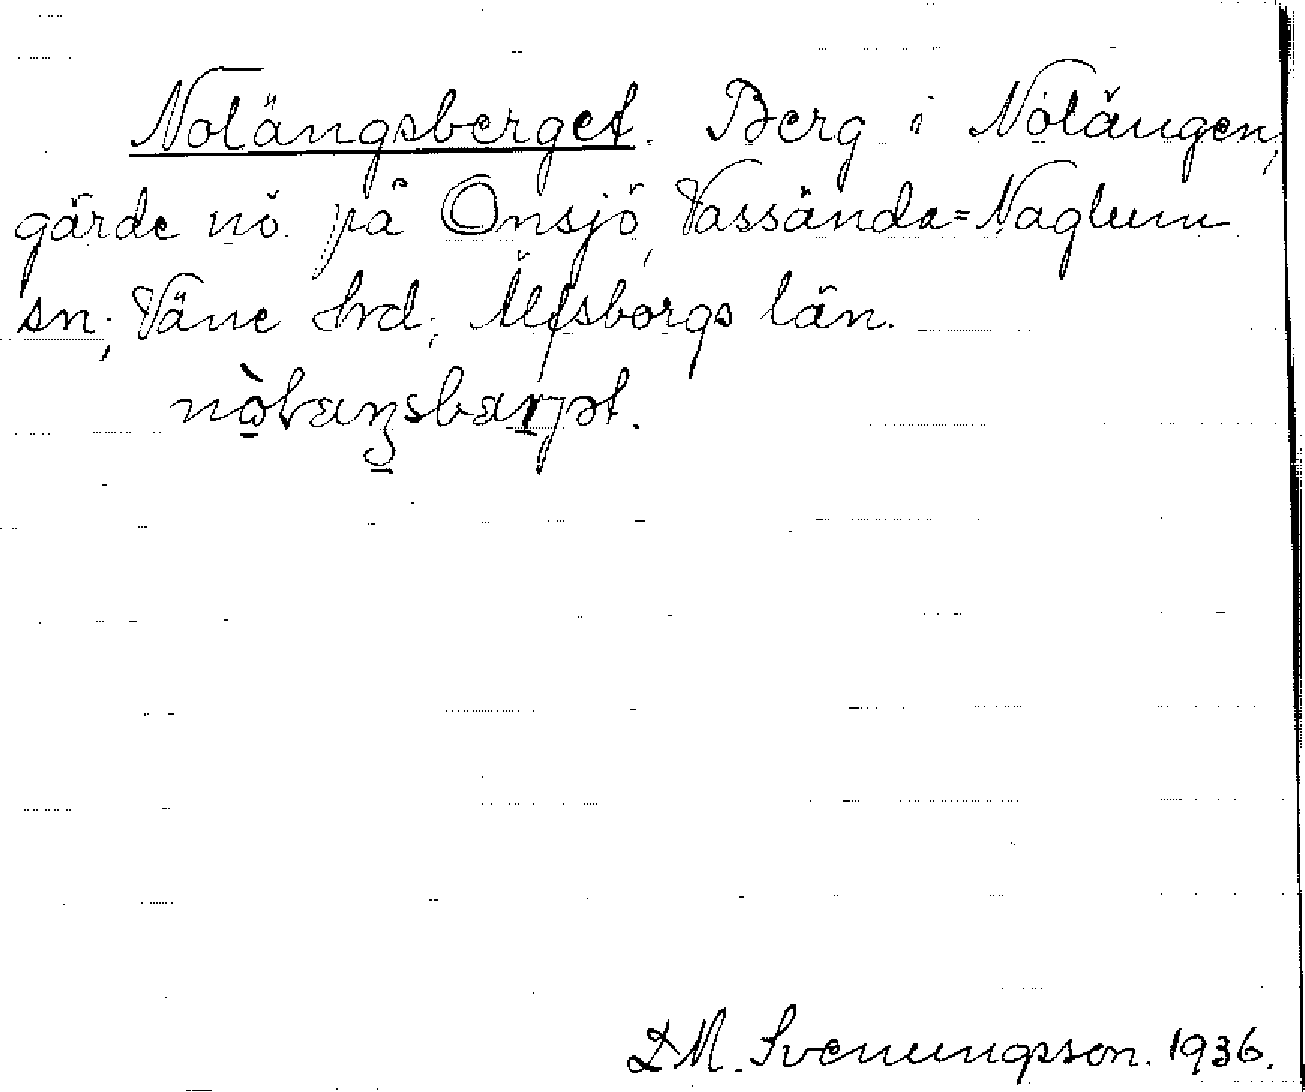 Notängsberget. Berg i Notängen,
gärde nö. på Onsjö, Vassända=Naglum
sn; Väne hrd; Älfsborgs län.
nò̠taŋ̠sbarjət.
D M. Svenungsson. 1936.